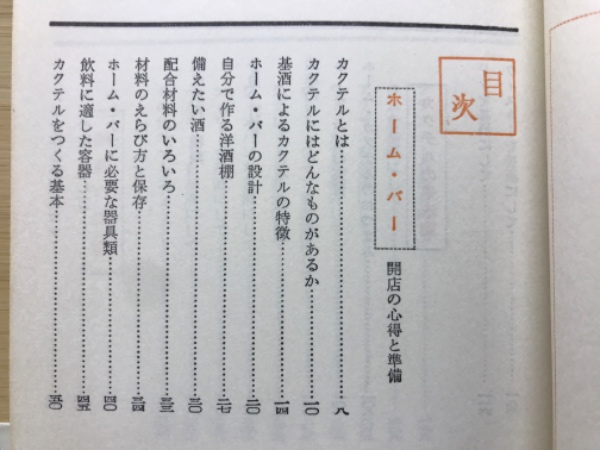 目次
ホーム・バー
開店の心得と準備
カクテルとは……八
カクテルにはどんなものがあるか……一〇
基酒によるカクテルの特徴……一四
ホーム・バーの設計……二〇
自分で作る洋酒棚……二七
備えたい酒……三〇
配合材料のいろいろ……三三
材料のえらび方と保存……三四
ホーム・バーに必要な器具類……四〇
飲料に適した容器……四五
カクテルをつくる基本……五〇